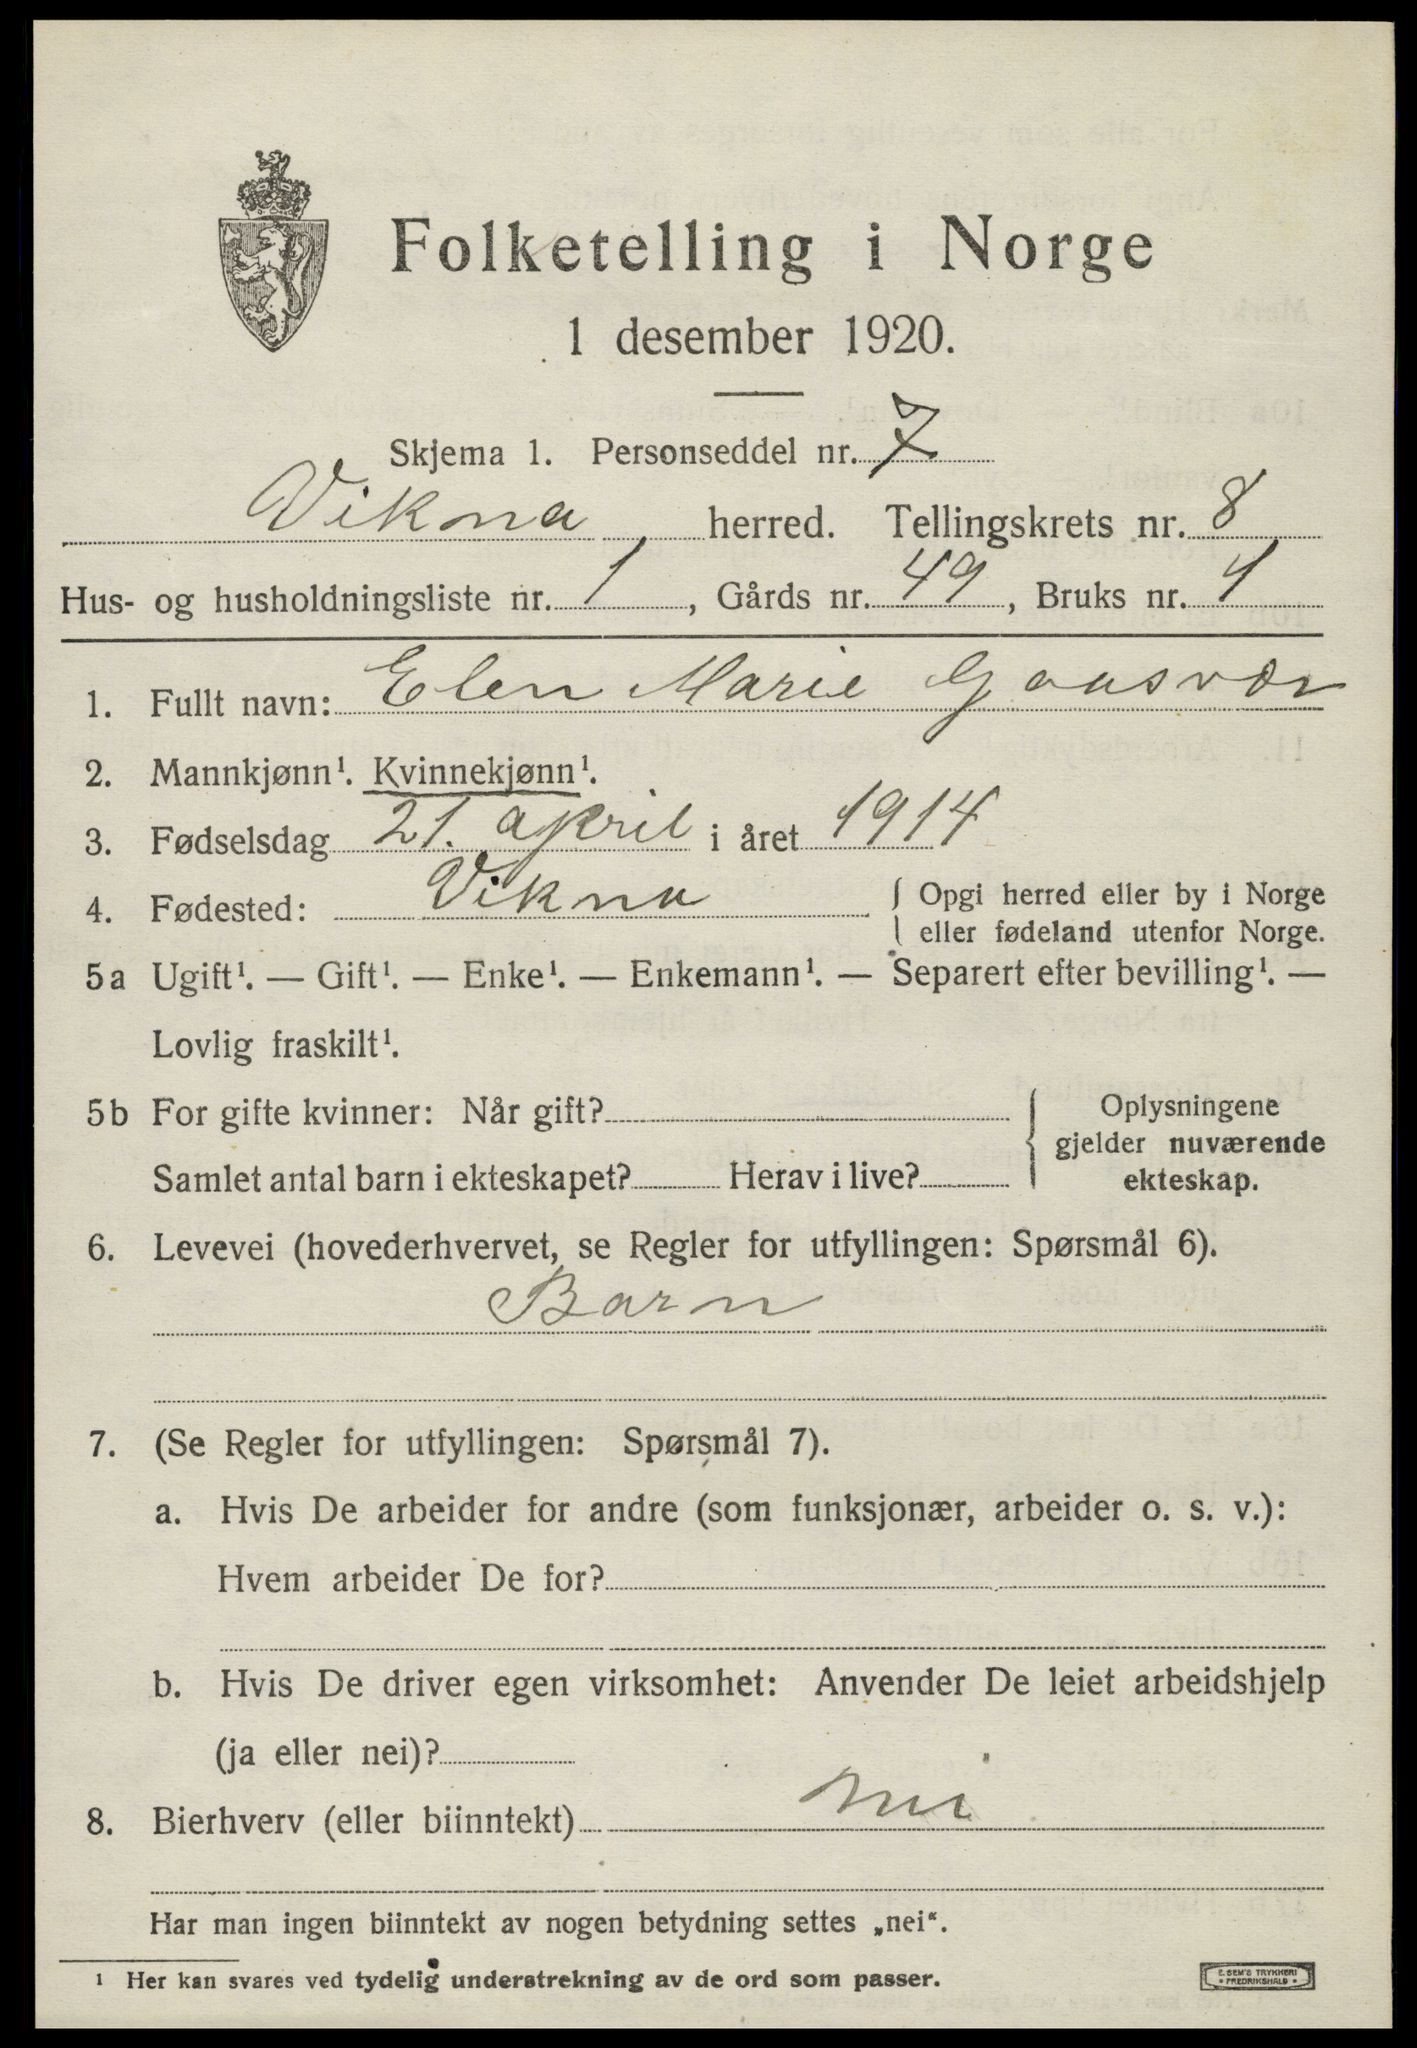 Folketelling i Norge
1 desember 1920.
Skjema 1. Personseddel nr. 7
Vikna herred. Tellingskrets nr. 8
Hus- og husholdningsliste nr. 1, Gårds nr. 49, Bruks nr. 1
1. Fullt navn: Elen Marie Gaasvær
2. Mannkjønn¹. Kvinnekjønn¹.
3. Fødselsdag 21. april i året 1914
4. Fødested: Vikna { Opgi herred eller by i Norge
eller fødeland utenfor Norge.
5a Ugift¹. — Gift¹. — Enke¹. — Enkemann¹. — Separert efter bevilling¹. —
Lovlig fraskilt¹.
5b For gifte kvinner: Når gift? { Oplysningene
gjelder nuværende
Samlet antal barn i ekteskapet? Herav i live? ekteskap.
6. Levevei (hovederhvervet, se Regler for utfyllingen: Spørsmål 6).
Barn
7. (Se Regler for utfyllingen: Spørsmål 7).
a. Hvis De arbeider for andre (som funksjonær, arbeider o. s. v.):
Hvem arbeider De for?
b. Hvis De driver egen virksomhet: Anvender De leiet arbeidshjelp
(ja eller nei)?
8. Bierhverv (eller biinntekt) nei
Har man ingen biinntekt av nogen betydning settes „nei“.
¹ Her kan svares ved tydelig understrekning av de ord som passer.
E. SEM'S TRYKKERI
• FREDRIKSHALD •